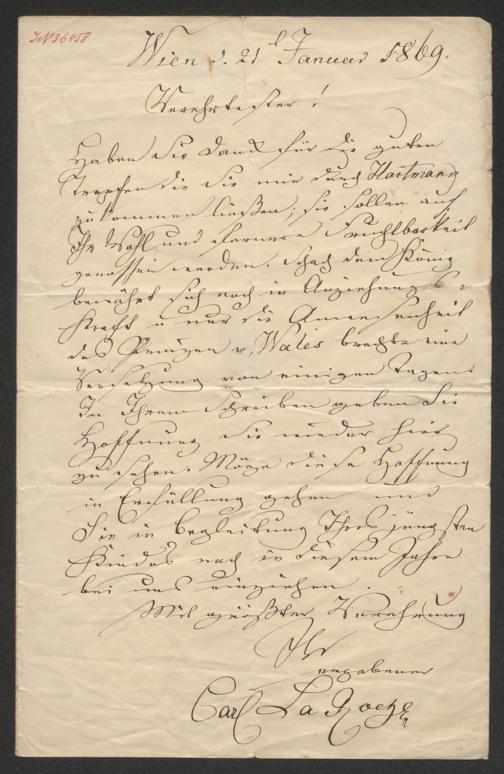 Wien d. 21t Januar 1869.
Verehrtester!
Haben Sie Dank für die guten
Tropfen die Sie mir durch Hartmann
zukommen ließen, sie sollen auf
Ihr Wohl und fernere Fruchtbarkeit
genossen werden. Schach dem König
bewährt sich noch in Anziehungs-
kraft u nur die Anwesenheit
des Prinzen v. Wales brachte eine
Versetzung von einigen Tagen.
In Ihrem Schreiben geben Sie
Hoffnung Sie wieder hier
zu sehen. Möge diese Hoffnung
in Erfüllung gehen und
Sie in Begleitung Ihres jüngsten
Kindes noch in diesem Jahre
bei uns einziehen.
Mit größter Verehrung
Ihr
ergebener
Carl La Roche